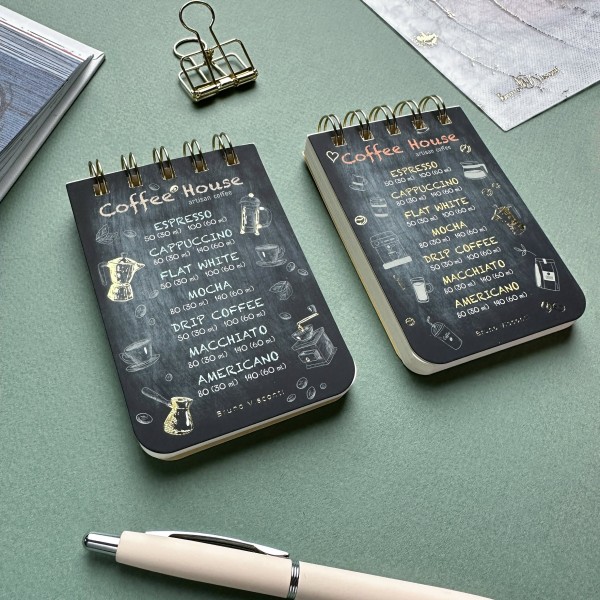 Coffee House
artisan coffee
ESPRESSO
50 (30 ml) 100 (60 ml)
CAPPUCCINO
80 (30 ml) 140 (60 ml)
FLAT WHITE
50 (30 ml) 100 (60 ml)
MOCHA
80 (30 ml) 140 (60 ml)
DRIP COFFEE
50 (30 ml) 100 (60 ml)
MACCHIATO
80 (30 ml) 140 (60 ml)
AMERICANO
80 (30 ml) 140 (60 ml)
Bruno Visconti
Coffee House
artisan coffee
ESPRESSO
50 (30 ml) 100 (60 ml)
CAPPUCCINO
80 (30 ml) 140 (60 ml)
FLAT WHITE
50 (30 ml) 100 (60 ml)
MOCHA
80 (30 ml) 140 (60 ml)
DRIP COFFEE
50 (30 ml) 100 (60 ml)
MACCHIATO
80 (30 ml) 140 (60 ml)
AMERICANO
80 (30 ml) 140 (60 ml)
Bruno Visconti